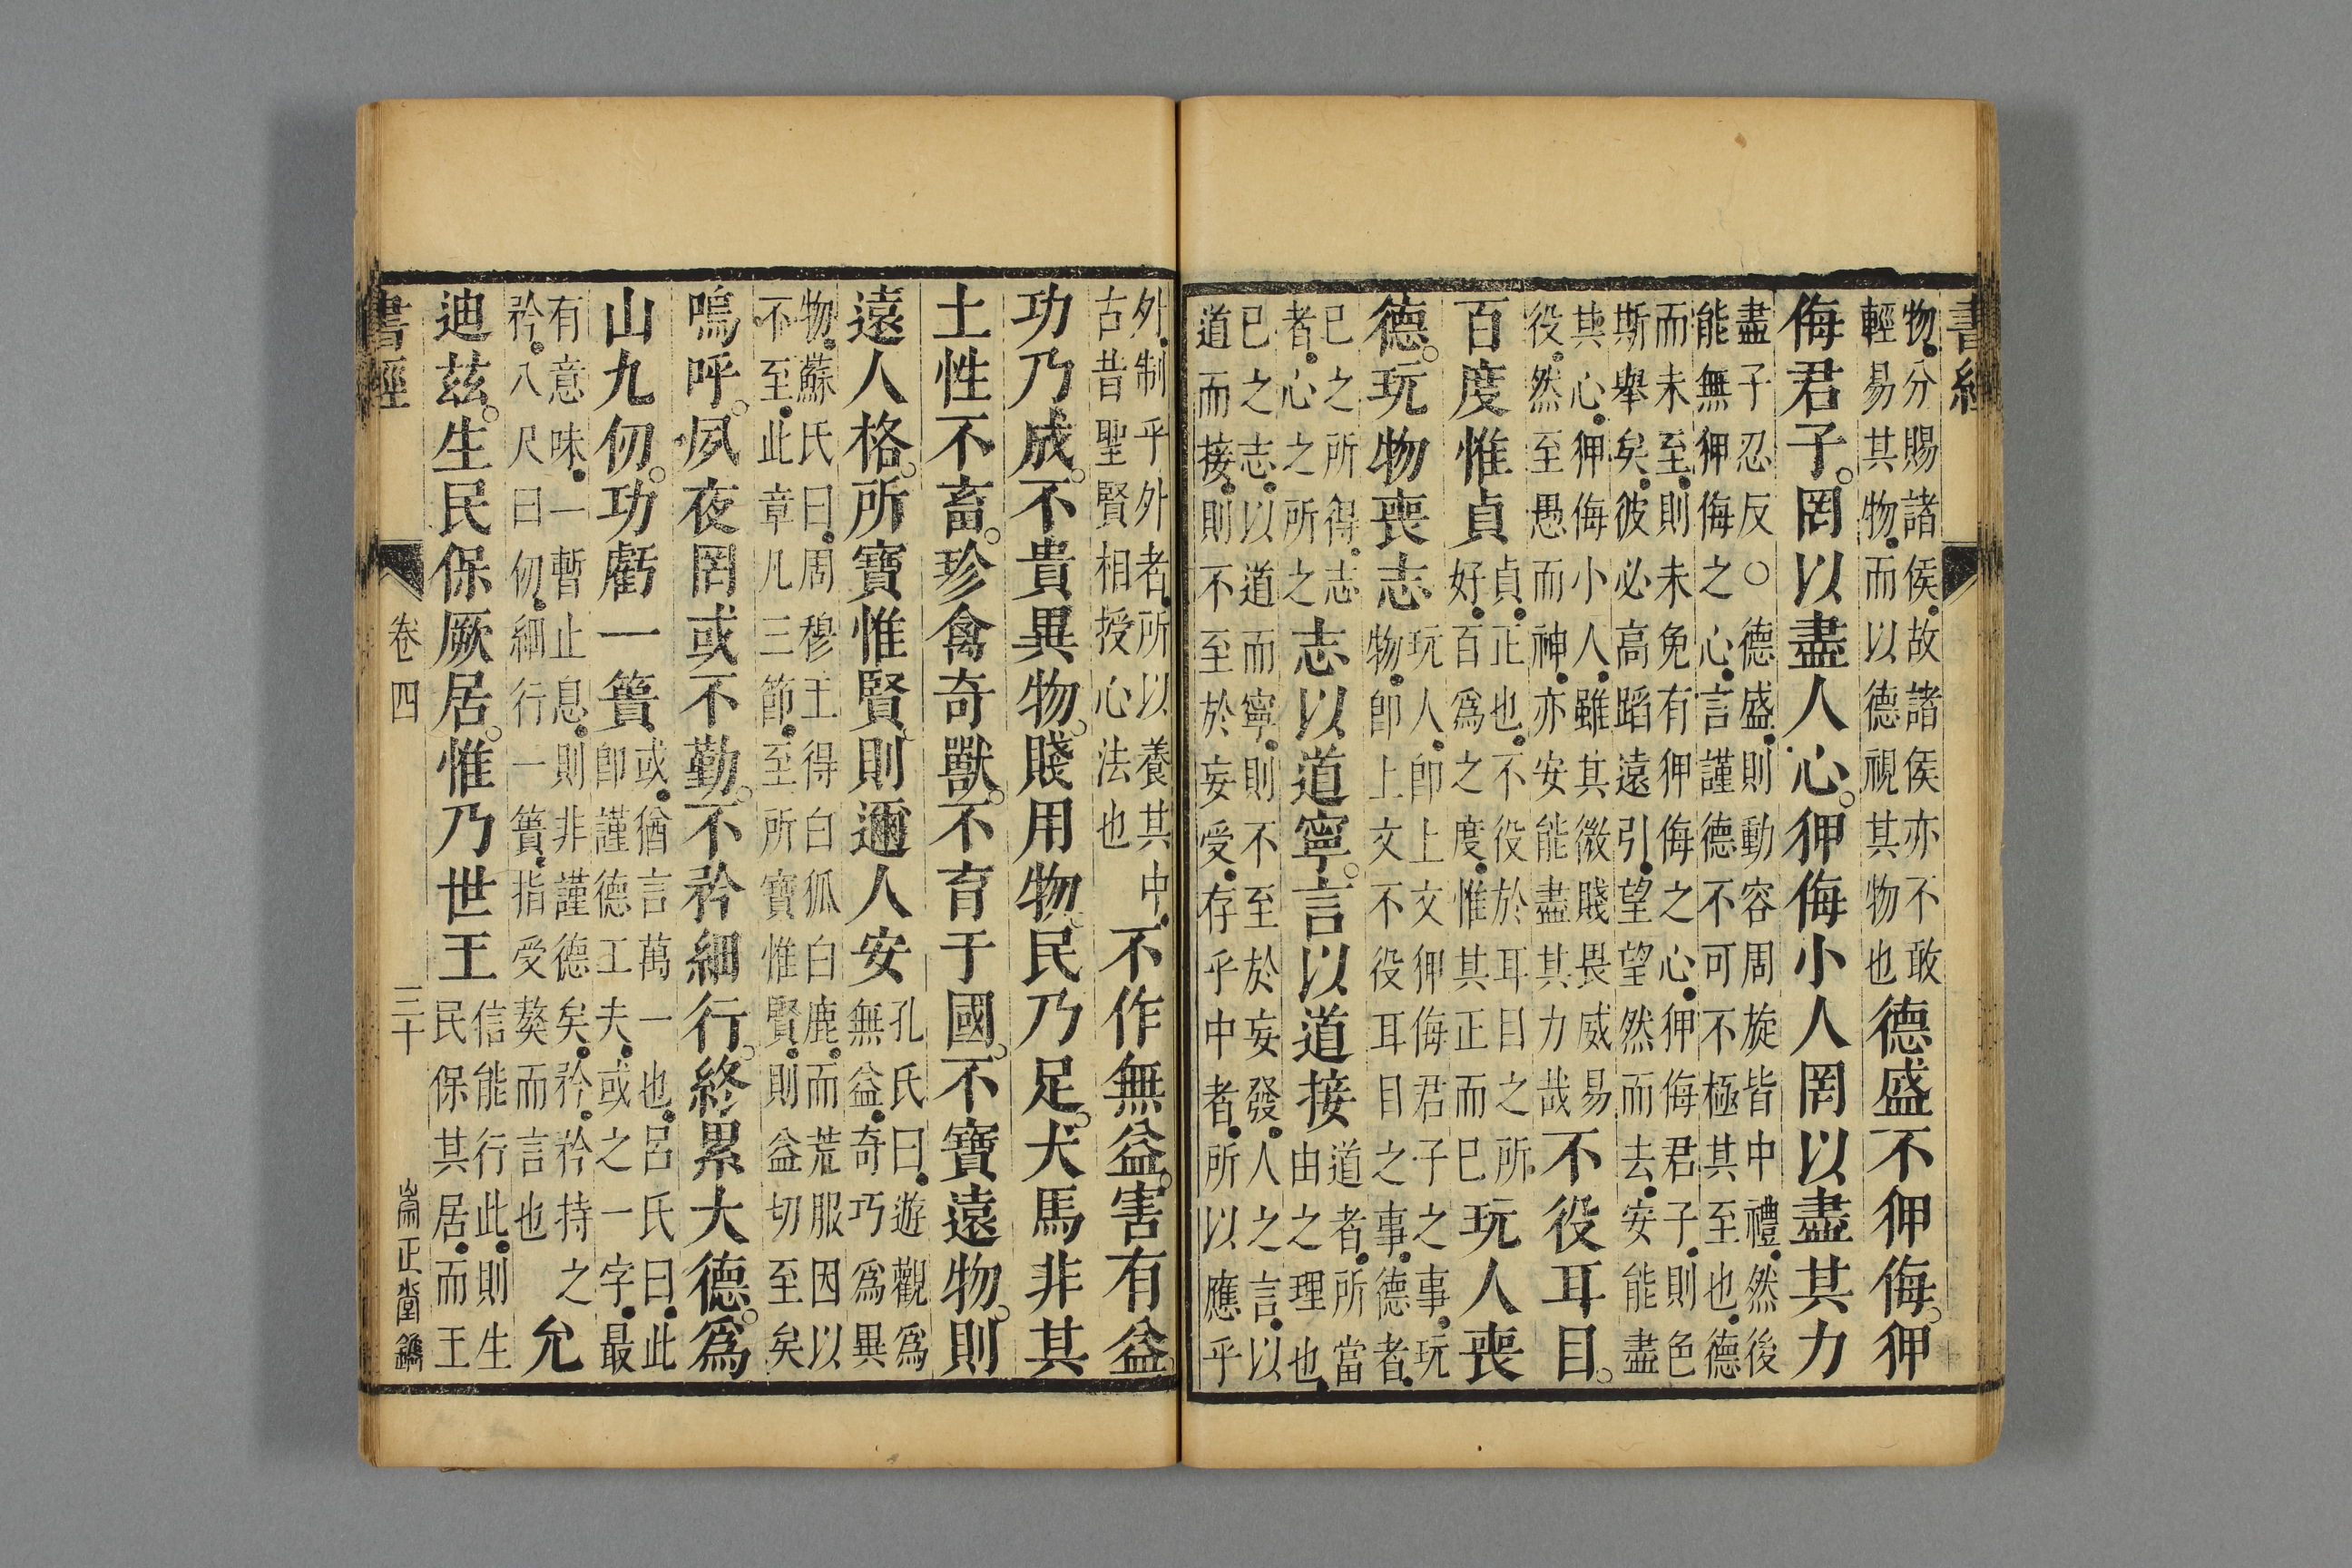 書經
物分賜諸侯故諸侯亦不敢
輕易其物而以德視其物也
德盛不狎侮。狎
侮君子。罔以盡人心。狎侮小人罔以盡其力
盡子忍反○德盛則動容周旋皆中禮然後
能無狎侮之心言謹德不可不極其至也德
而未至則未免有狎侮之心狎侮君子則色
斯舉矣彼必高蹈遠引望望然而去安能盡
其心狎侮小人雖其微賤畏威易
役然至愚而神亦安能盡其力哉
不役耳目。
百度惟貞
貞正也不役於耳目之所
好百爲之度惟其正而已
玩人喪
德。玩物喪志
玩人即上文狎侮君子之事玩
物即上文不役耳目之事德者
已之所得志
者心之所之
志以道寧。言以道接
道者所當
由之理也
已之志以道而寧則不至於妄發人之言以
道而接則不至於妄受存乎中者所以應乎
外制乎外者所以養其中
古昔聖賢相授心法也
不作無益。害有益。
功乃成。不貴異物。賤用物民乃足。犬馬非其
土性不畜。珍禽奇獸。不育于國。不寶遠物。則
遠人格。所寶惟賢則邇人安
孔氏曰遊觀爲
無益奇巧爲異
物蘇氏曰周穆王得白狐白鹿而荒服因以
不至此章凡三節至所寶惟賢則益切至矣
嗚呼。夙夜罔或不勤。不矜細行。終累大德。爲
山九仞。功虧一簣
或猶言萬一也呂氏曰此
即謹德工夫或之一字最
有意味一暫止息則非謹德矣矜矜持之
矜八尺曰仞細行一簣指受獒而言也
允
迪茲。生民保厥居。惟乃世王
信能行此則生
民保其居而王
書經
卷四
三十
崇正堂鐫